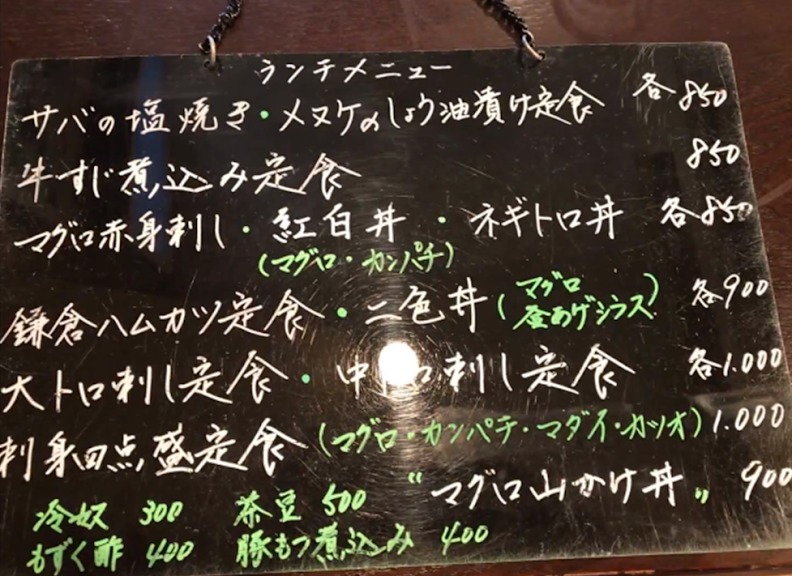 ランチメニュー
サバの塩焼き・メヌケのしょう油漬け定食 各850
牛すじ煮込み定食 850
マグロ赤身刺し・紅白丼・ネギトロ丼 各850
(マグロ・カンパチ)
鎌倉ハムカツ定食・二色丼(マグロ 釜あげシラス) 各900
大トロ刺し定食・中トロ刺し定食 各1.000
刺身四点盛定食(マグロ・カンパチ・マダイ・カツオ) 1.000
"マグロ山かけ丼" 900
冷奴 300 茶豆 500
もずく酢 400 豚もつ煮込み 400